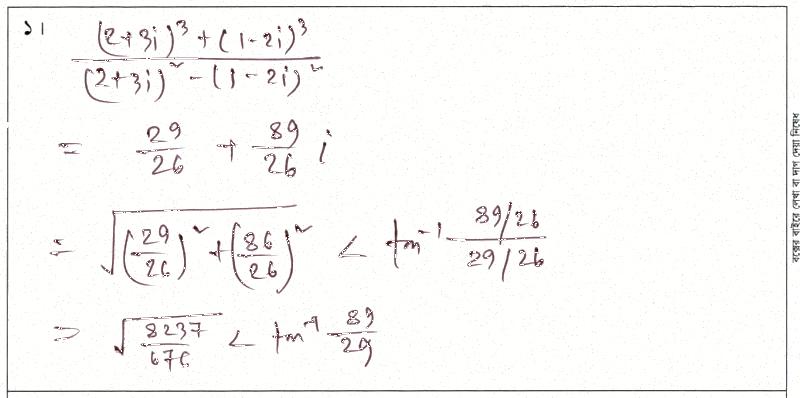 ১। ((2+3i)³ + (1-2i)³) / ((2+3i)² - (1-2i)²)
= 29/26 + 89/26 i
= √((29/26)² + (86/26)²) < tan⁻¹ (89/26)/(29/26)
= √(8237/676) < tan⁻¹ 89/29
বক্সের বাইরে লেখা বা দাগ দেয়া নিষেধ